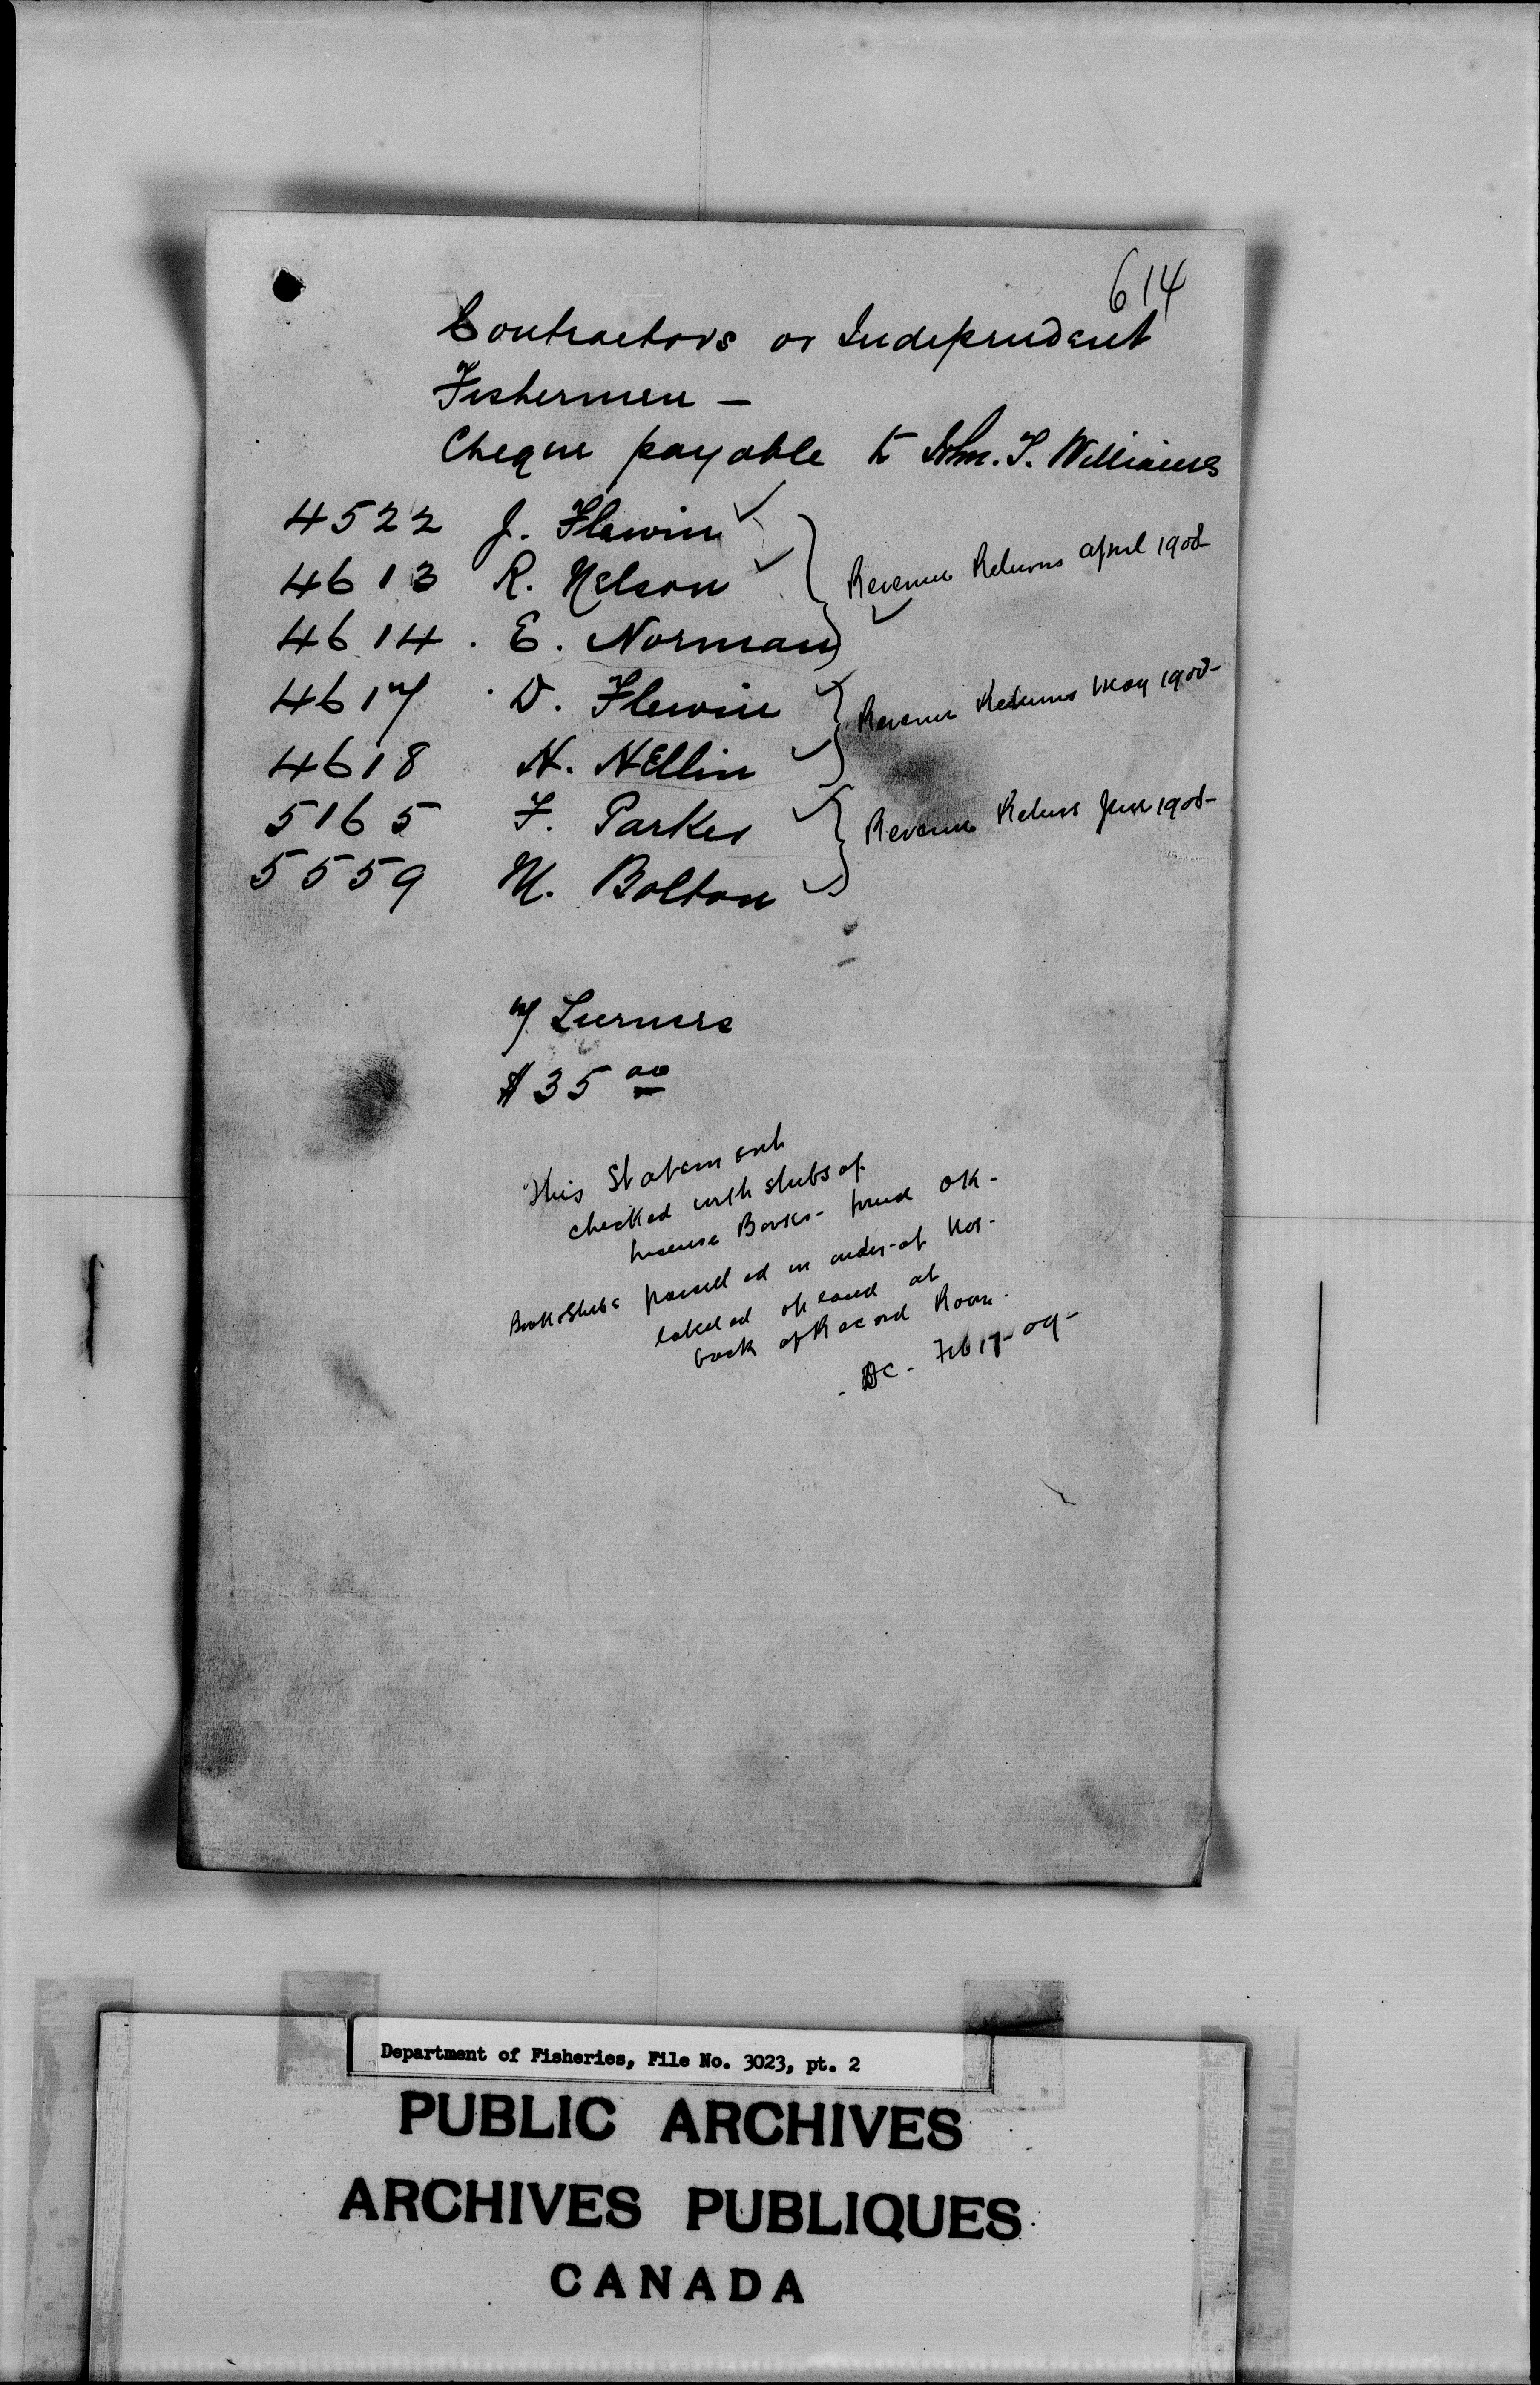 614
Contractors or Independent
Fishermen —
Cheque payable to Jno. T. Williams
4522 J. Flewin
4613 R. Nelson
Revenue Returns April 1908-
4614 . E. Norman
4617 D. Flewin
Revenue Returns May 1908-
4618 N. Nellin
5165 F. Parker
Revenue Returns June 1908-
5559 M. Bolton
7 Licenses
$35 00
This Statement
checked with stubs of
license Books - found OK -
Book Stubs parcelled in order of Nos -
labeled & placed at
back of Record Room.
AC - Feb 17-09-
Department of Fisheries, File No. 3023, pt. 2
PUBLIC ARCHIVES
ARCHIVES PUBLIQUES
CANADA